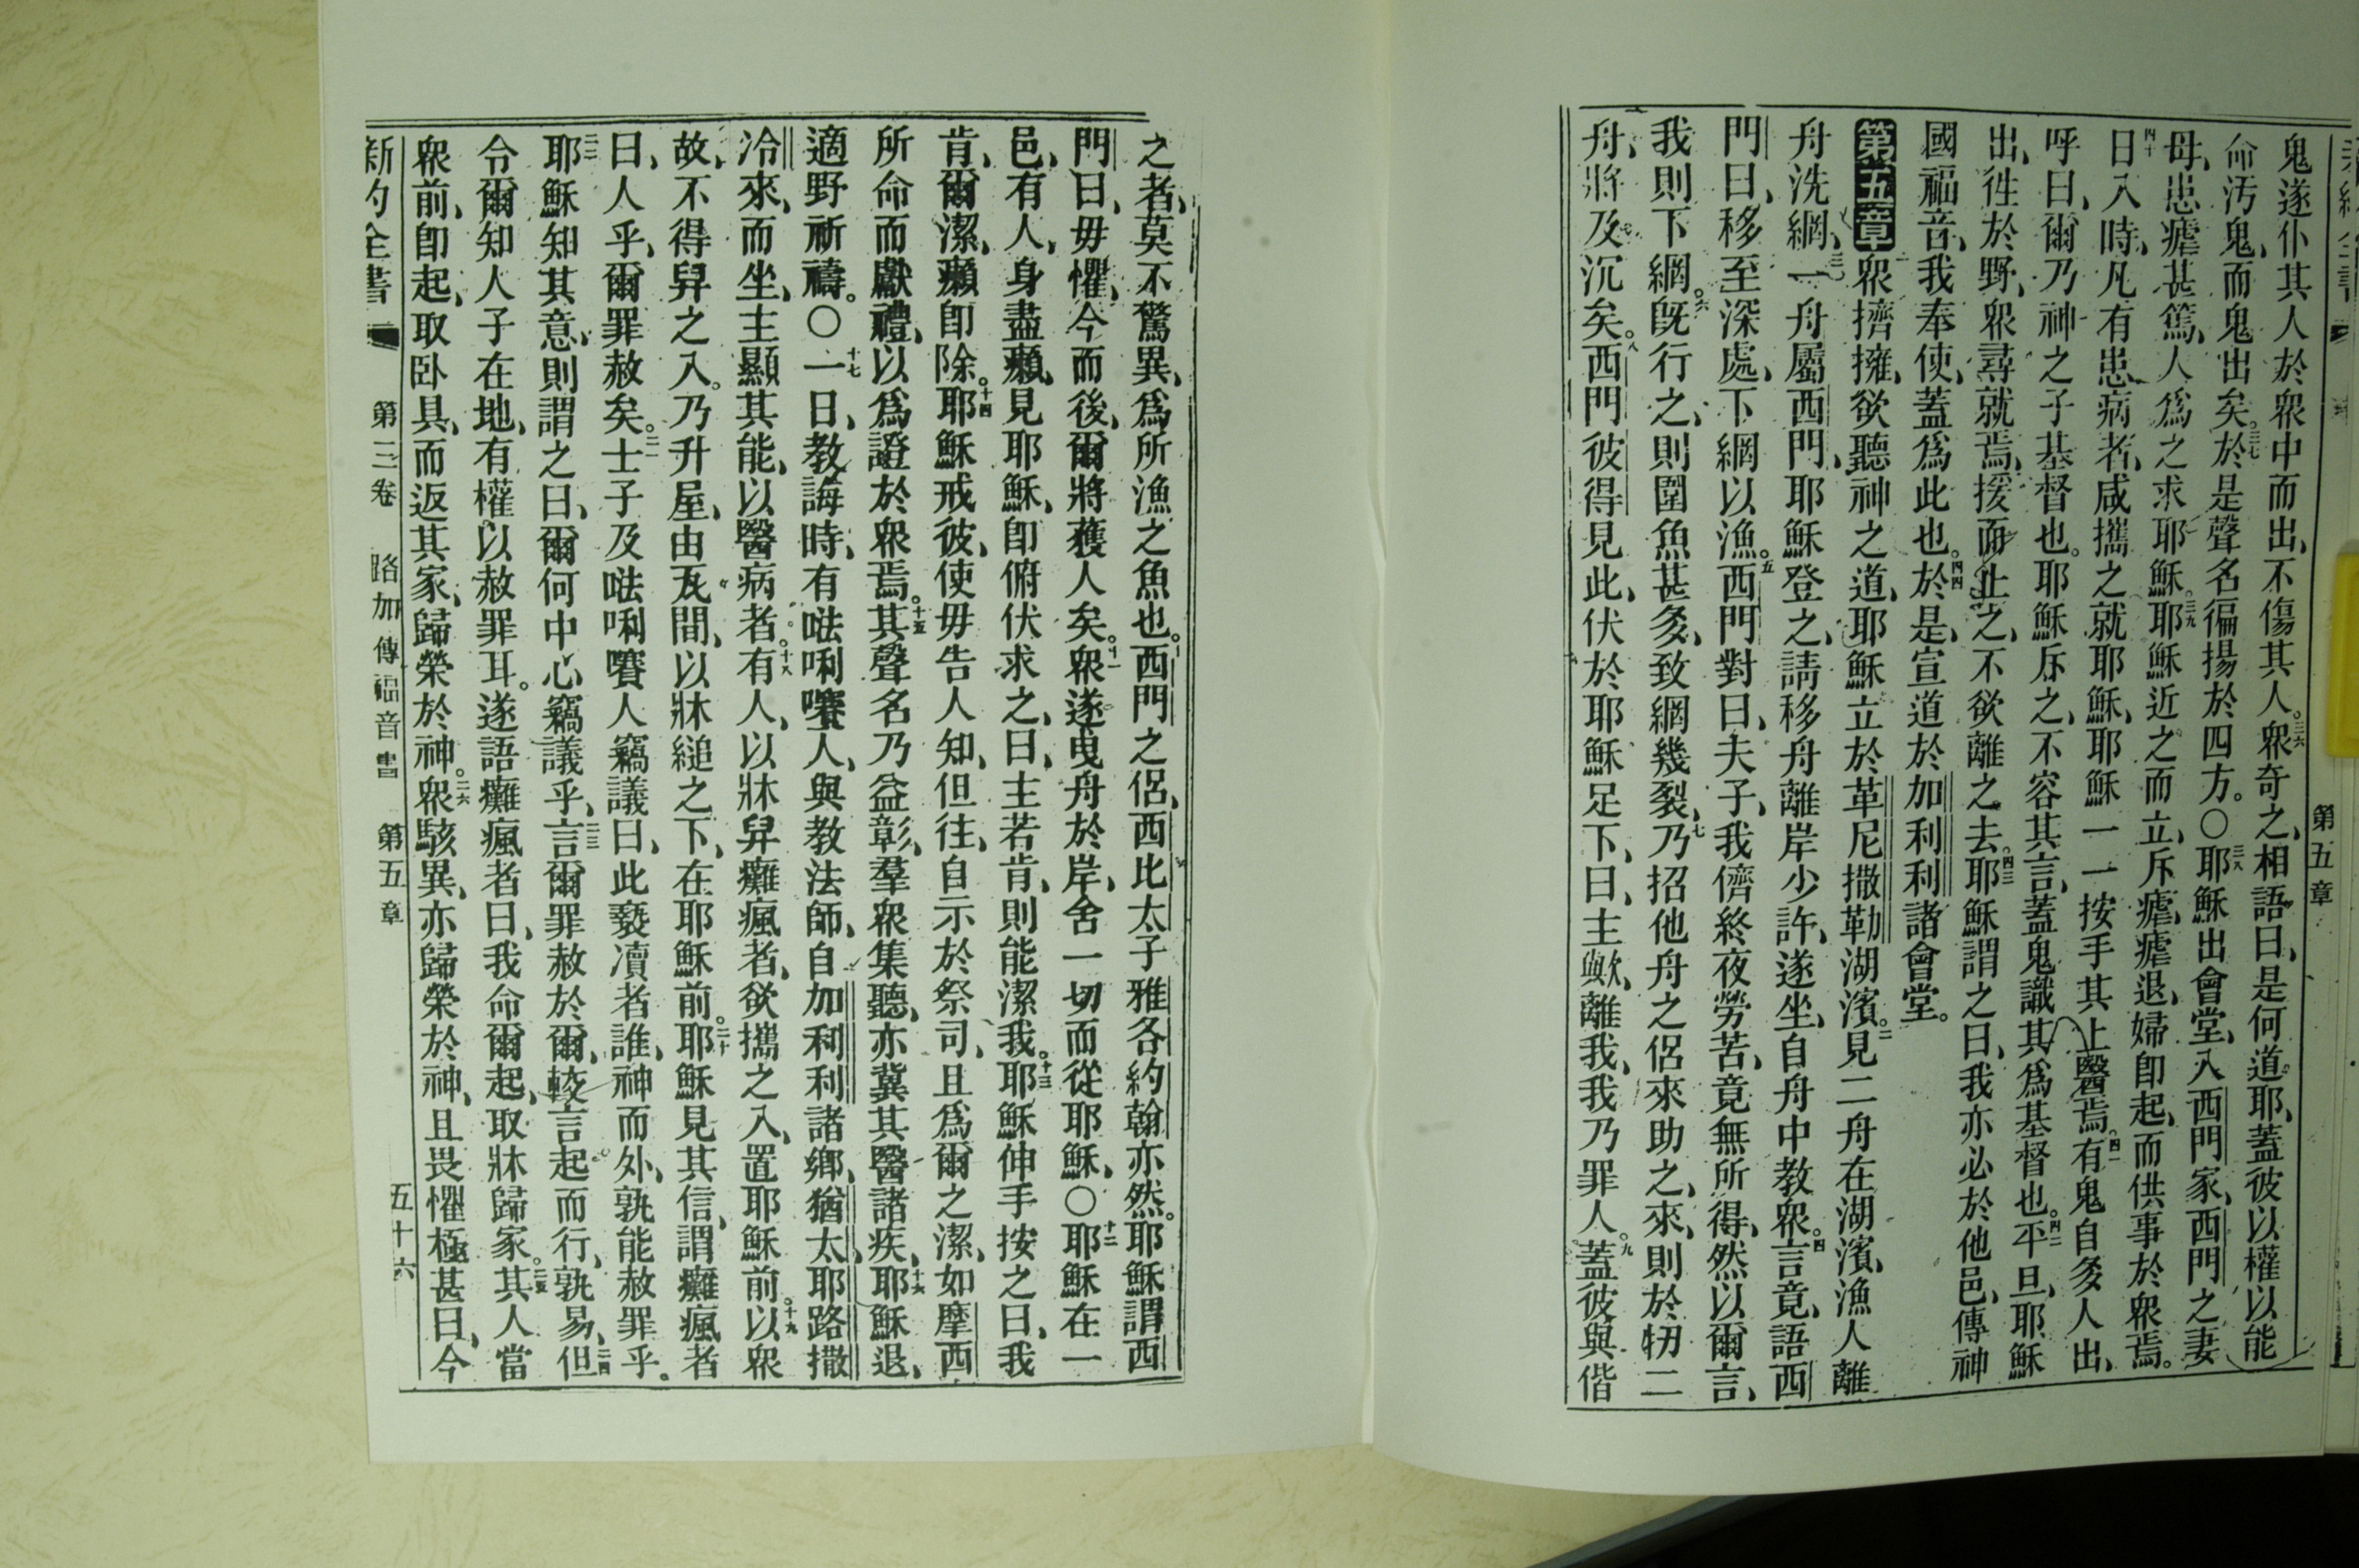 第五章
鬼遂仆其人於衆中而出、不傷其人。三六衆奇之、相語曰、是何道耶、蓋彼以權以能
命汚鬼、而鬼出矣。三七於是聲名徧揚於四方。〇三八耶穌出會堂、入西門家、西門之妻
母、患瘧甚篤、人爲之求耶穌。三九耶穌近之而立、斥瘧、瘧退、婦卽起、而供事於衆焉。
四十日入時、凡有患病者、咸攜之就耶穌、耶穌一一按手其上醫焉。四一有鬼自多人出、
呼曰、爾乃神之子基督也。耶穌斥之、不容其言、蓋鬼識其爲基督也。四二平旦、耶穌
出、徃於野、衆尋就焉、援而止之、不欲離之去。四三耶穌謂之曰、我亦必於他邑、傳神
國福音、我奉使、蓋爲此也。四四於是、宣道於加利利諸會堂。
第五章 一衆擠擁、欲聽神之道、耶穌立於革尼撒勒湖濱。二見二舟在湖濱、漁人離
舟洗網、三一舟屬西門、耶穌登之、請移舟離岸少許、遂坐、自舟中教衆。四言竟、語西
門曰、移至深處、下網以漁。五西門對曰、夫子、我儕終夜勞苦、竟無所得、然以爾言、
我則下網。六旣行之、則圍魚甚多、致網幾裂、七乃招他舟之侶來助之、來、則於牣二
舟、將及沉矣。八西門彼得見此、伏於耶穌足下、曰、主歟、離我、我乃罪人。九蓋彼與偕
之者、莫不驚異、爲所漁之魚也。十西門之侶、西比太子雅各約翰亦然。耶穌謂西
門曰、毋懼、今而後、爾將獲人矣。十一衆遂曳舟於岸、舍一切而從耶穌、〇十二耶穌在一
邑、有人、身盡癩、見耶穌、卽俯伏求之、曰、主若肯、則能潔我。十三耶穌伸手按之曰、我
肯、爾潔、癩卽除。十四耶穌戒彼、使毋告人知、但往、自示於祭司、且爲爾之潔、如摩西
所命而獻禮、以爲證於衆焉。十五其聲名乃益彰、羣衆集聽、亦冀其醫諸疾、十六耶穌退、
適野祈禱。〇十七一日、教誨時、有𠵽唎㘔人、與教法師、自加利利諸鄉、猶太、耶路撒
冷來、而坐、主顯其能、以醫病者。十八有人、以牀舁癱瘋者、欲攜之入、置耶穌前。十九以衆
故、不得舁之入。乃升屋、由瓦間、以牀縋之下、在耶穌前。二十耶穌見其信、謂癱瘋者
曰、人乎、爾罪赦矣。二一士子及𠵽唎㘔人竊議曰、此褻瀆者誰、神而外、孰能赦罪乎。
二二耶穌知其意、則謂之曰、爾何中心竊議乎、二三言爾罪赦於爾、較言起而行、孰易、二四但
令爾知人子在地、有權以赦罪耳。遂語癱瘋者曰、我命爾起、取牀歸家。二五其人當
衆前、卽起、取卧具、而返其家、歸榮於神。二六衆駭異、亦歸榮於神、且畏懼極甚曰、今
新約全書 第三卷 路加傳福音書 第五章 五十六